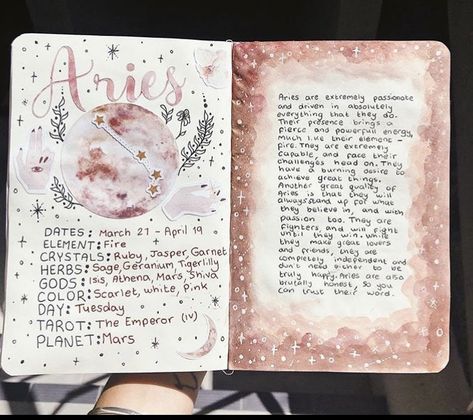 Aries
DATES: March 21 - April 19
ELEMENT: Fire
CRYSTALS: Ruby, Jasper, Garnet
HERBS: Sage, Geranium, Tigerlilly
GODS: Isis, Athena, Mars, Shiva
COLOR: Scarlet, white, Pink
DAY: Tuesday
TAROT: The Emperor (iv)
PLANET: Mars
Aries are extremely passionate
and driven in absolutely
everything that they do.
Their presence brings a
fierce and powerfull energy,
much like their element -
fire. They are extremely
capable, and face their
challenges head on. They
have a burning desire to
achieve great things.
Another great quality of
Aries is that they will
always stand up for what
they believe in, and with
passion too. They are
fighters, and will fight
until they win. While
they make great lovers
and friends, they are
completely independent and
don't need either to be
truly happy. Aries are also
brutally honest, so you
can trust their word.